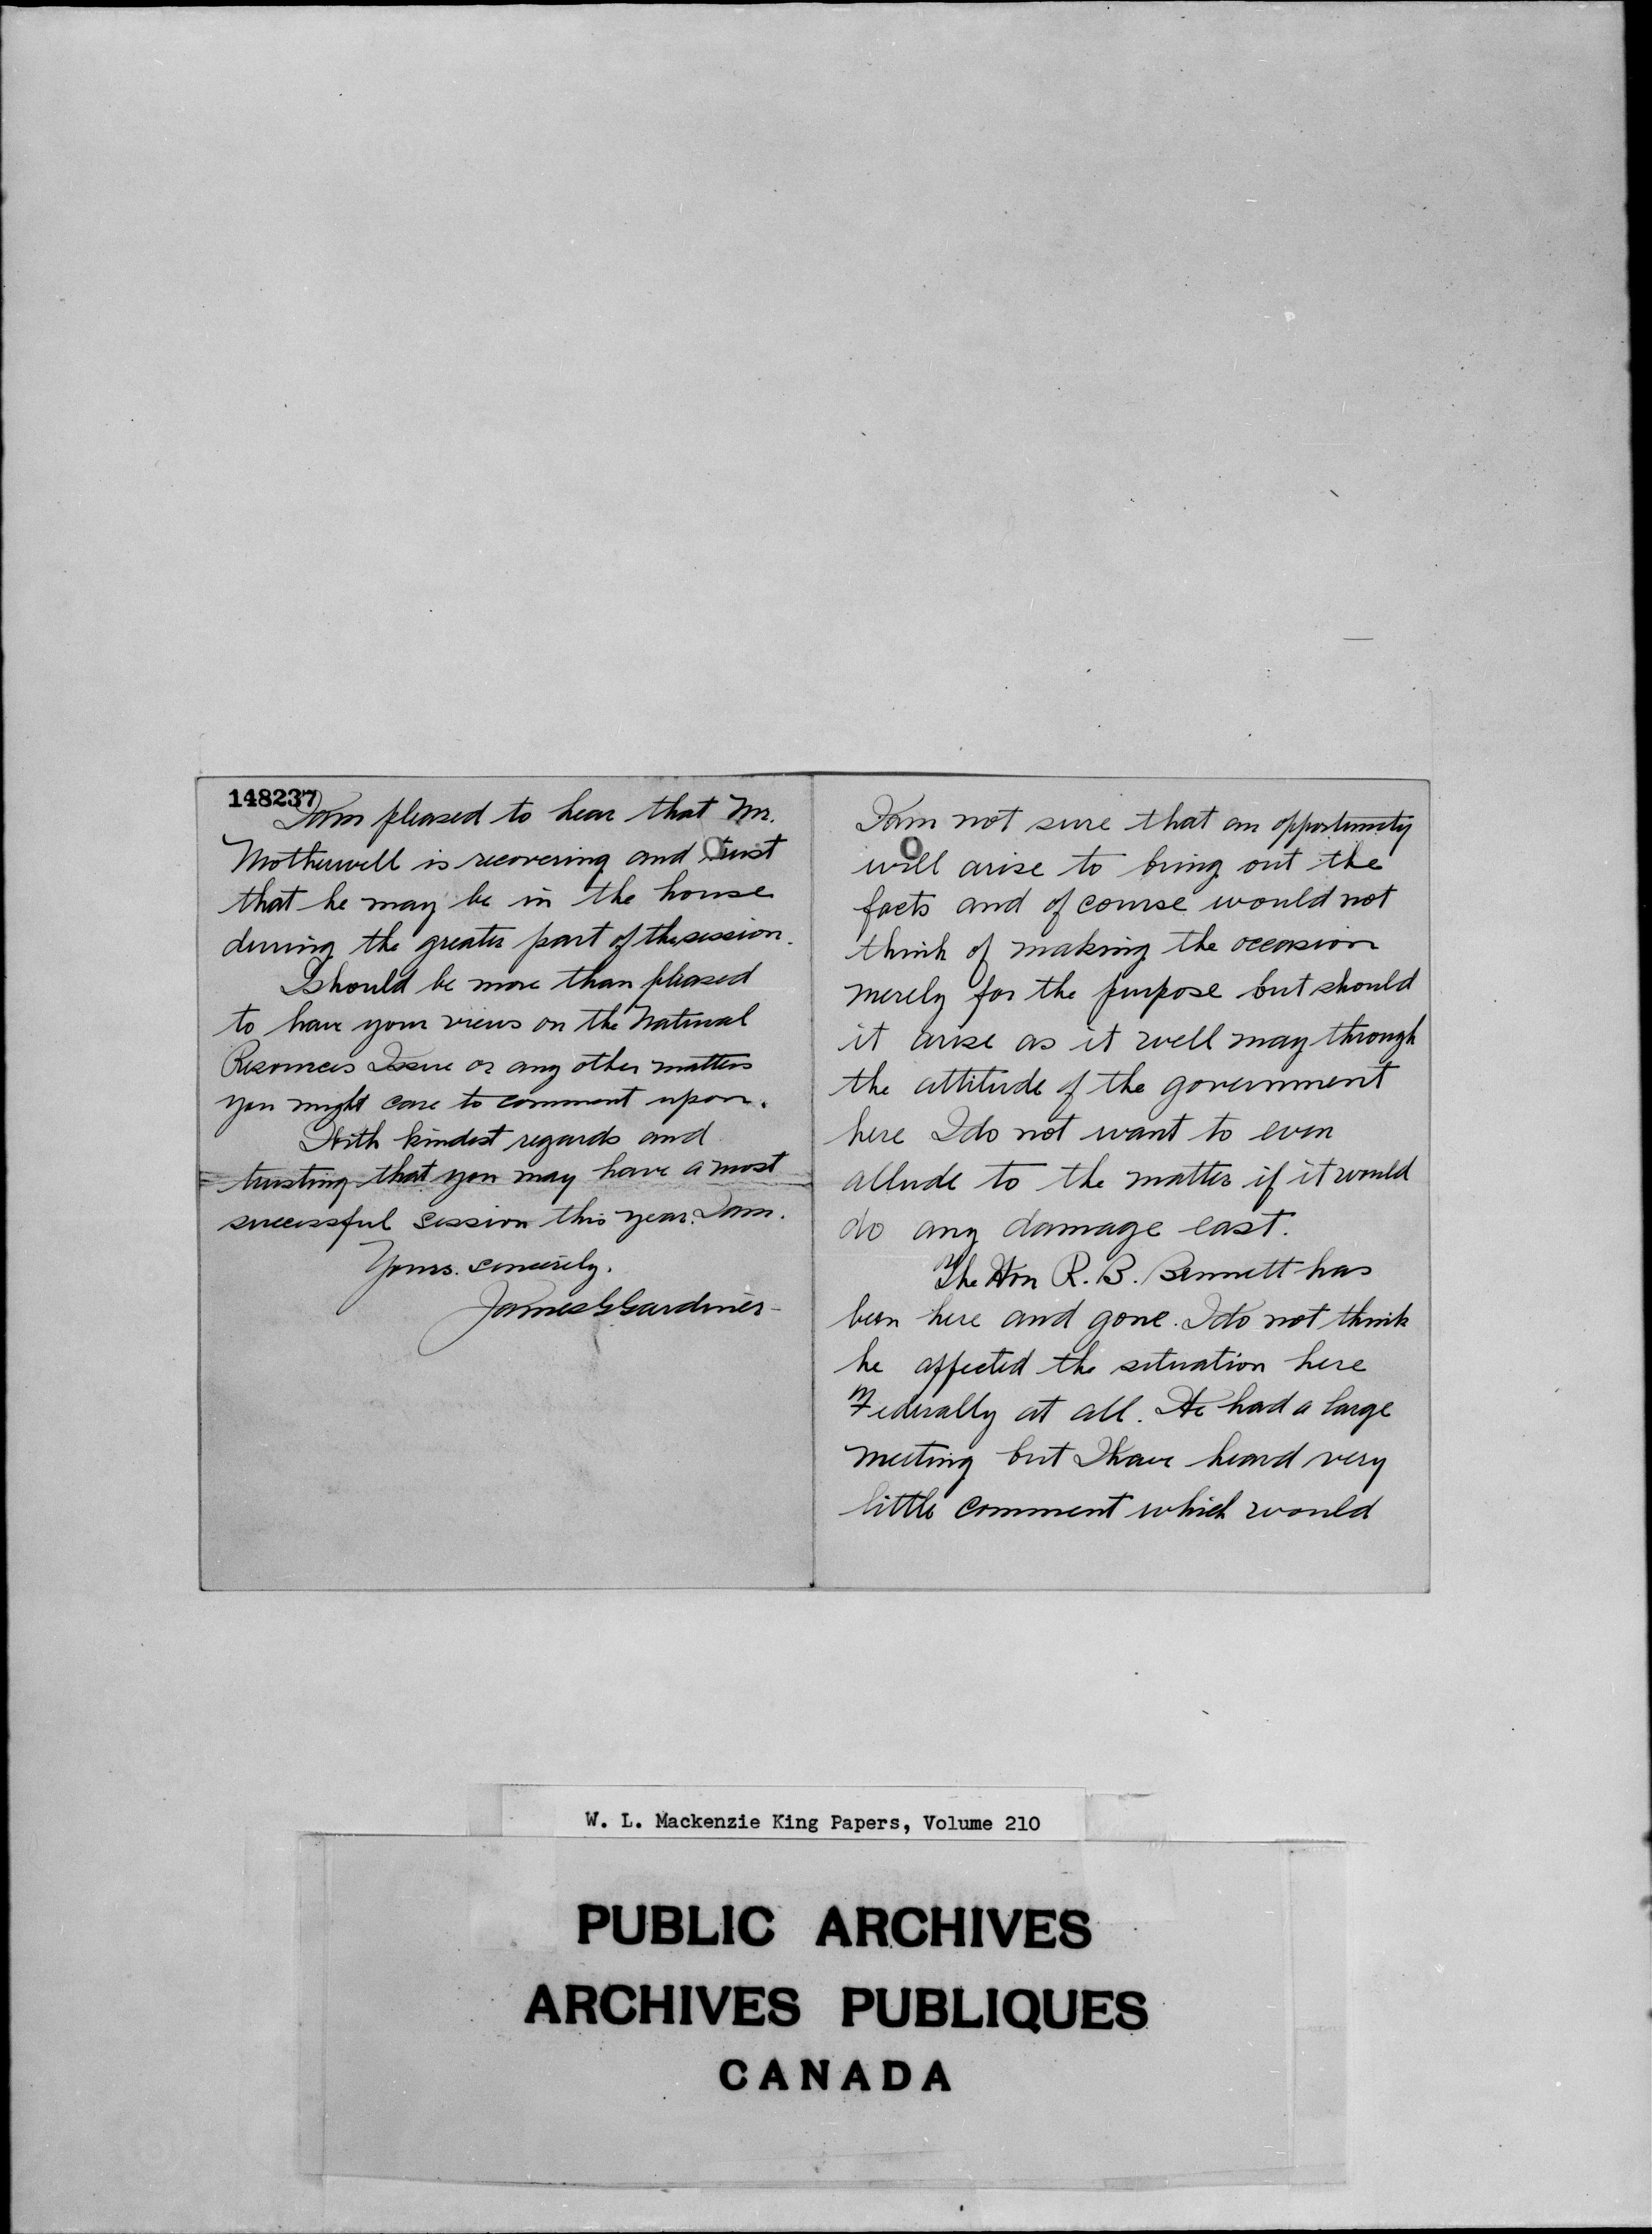 148237
I am pleased to hear that Mr.
Motherwell is recovering and trust
that he may be in the house
during the greater part of the session.
I should be more than pleased
to have your views on the Natural
Resources Issue or any other matters
you might care to comment upon.
With kindest regards and
trusting that you may have a most
successful session this year. I am.
Yours. sincerely.
James G Gardiner
I am not sure that an opportunity
will arise to bring out the
facts and of course would not
think of making the occasion
merely for the purpose but should
it arise as it well may through
the attitude of the government
here I do not want to even
allude to the matter if it would
do any damage east.
The Hon R. B. Bennett has
been here and gone. I do not think
he affected the situation here
Federally at all. He had a large
meeting but I have heard very
little comment which would
W. L. Mackenzie King Papers, Volume 210
PUBLIC ARCHIVES
ARCHIVES PUBLIQUES
CANADA